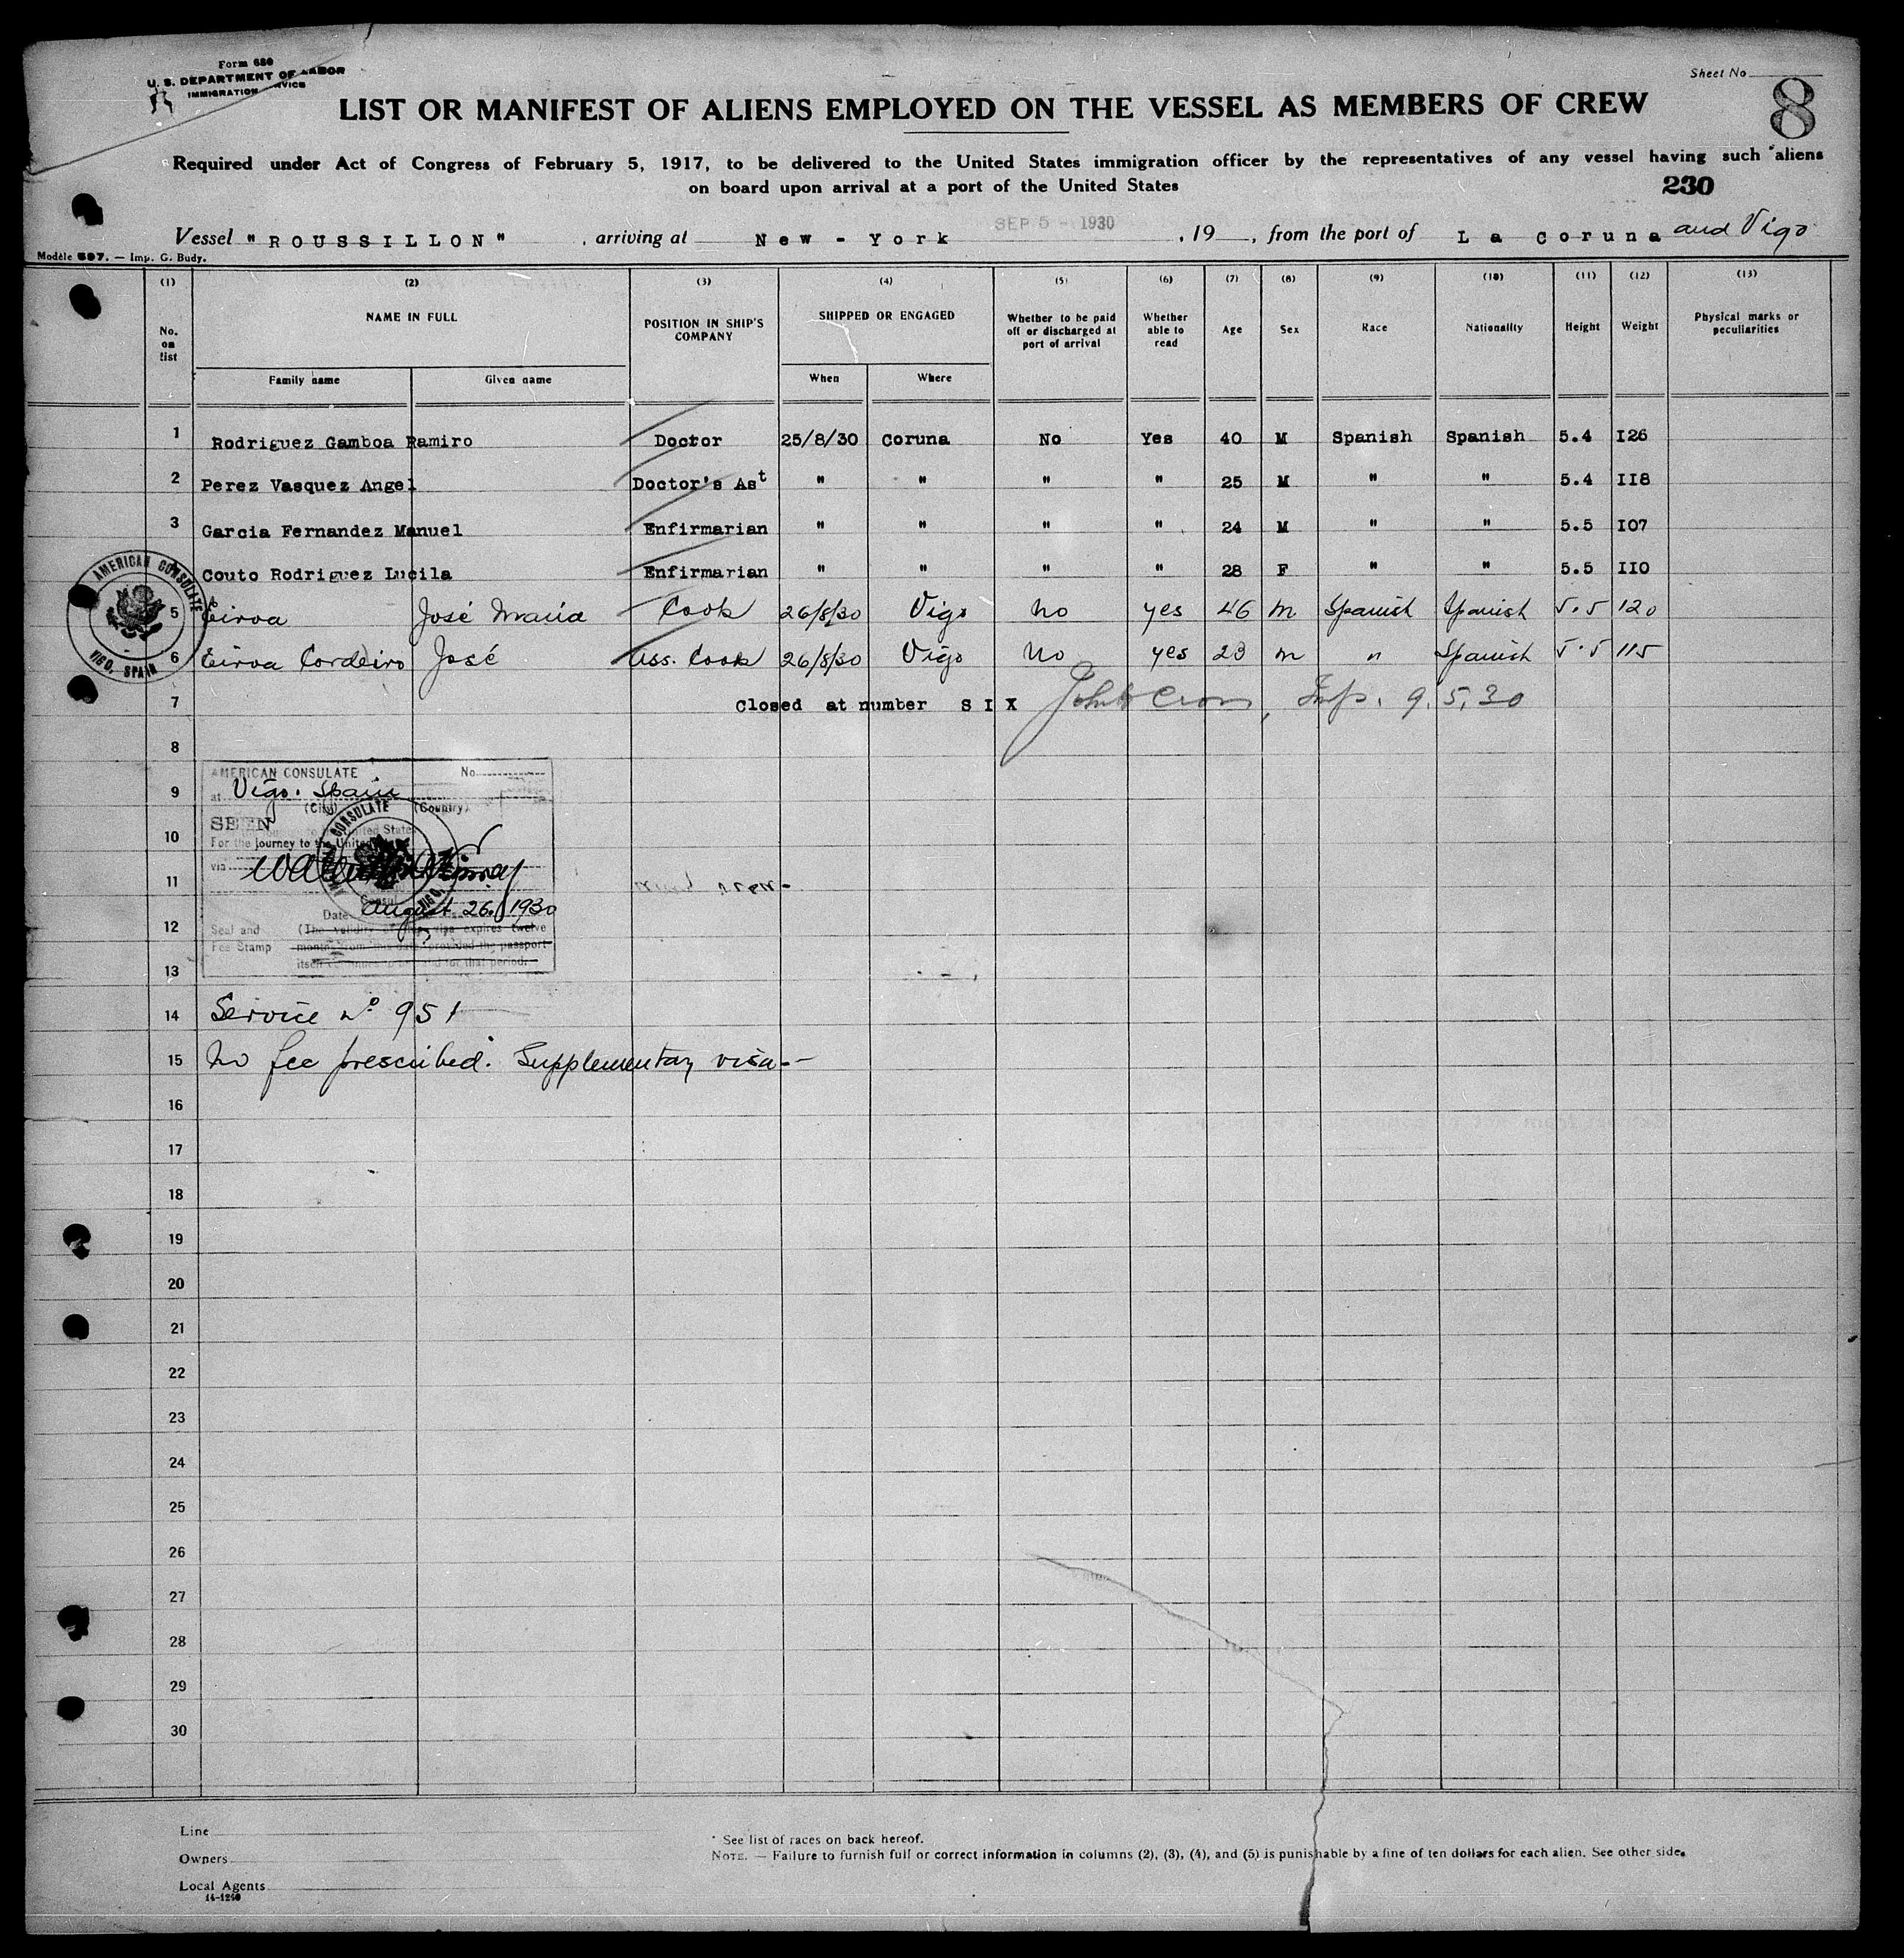 Form 680
U. S. DEPARTMENT OF LABOR
IMMIGRATION SERVICE
Sheet No
8
LIST OR MANIFEST OF ALIENS EMPLOYED ON THE VESSEL AS MEMBERS OF CREW
Required under Act of Congress of February 5, 1917, to be delivered to the United States immigration officer by the representatives of any vessel having such aliens
on board upon arrival at a port of the United States
230
SEP 5 - 1930
Vessel "ROUSSILLON", arriving at New-York, 19, from the port of La Coruna and Vigo
Modèle 597. — Imp. G. Budy.
(1) (2) (3) (4) (5) (6) (7) (8) (9) (10) (11) (12) (13)
No. on list NAME IN FULL POSITION IN SHIP'S COMPANY SHIPPED OR ENGAGED Whether to be paid off or discharged at port of arrival Whether able to read Age Sex Race Nationality Height Weight Physical marks or peculiarities
Family name Given name When Where
1 Rodriguez Gamboa Ramiro Doctor 25/8/30 Coruna No Yes 40 M Spanish Spanish 5.4 I26
2 Perez Vasquez Angel Doctor's Ast " " " " 25 M " " 5.4 II8
3 Garcia Fernandez Manuel Enfirmarian " " " " 24 M " " 5.5 I07
Couto Rodriguez Lucila Enfirmarian " " " " 28 F " " 5.5 II0
5 Eiroa José Maria Cook 26/8/30 Vigo No yes 46 m Spanish Spanish 5.5 120
6 Eiroa Cordeiro José Ass. Cook 26/8/30 Vigo No yes 23 m " Spanish 5.5 115
AMERICAN CONSULATE
VIGO, SPAIN
7 Closed at number SIX Insp. 9.5.30
8
AMERICAN CONSULATE No.
9 at Vigo. Spain
(City) (Country)
10 SEEN
For the journey to the United States
via
11
Consul
Date August 26, 1930
12 Seal and (The validity of this visa expires twelve
Fee Stamp months from this date, provided the passport
13 itself continues to be valid for that period.
14 Service No 951
15 No fee prescribed. Supplementary visa.-
16
17
18
19
20
21
22
23
24
25
26
27
28
29
30
Line
Owners
Local Agents
14-1240
* See list of races on back hereof.
NOTE. — Failure to furnish full or correct information in columns (2), (3), (4), and (5) is punishable by a fine of ten dollars for each alien. See other side.